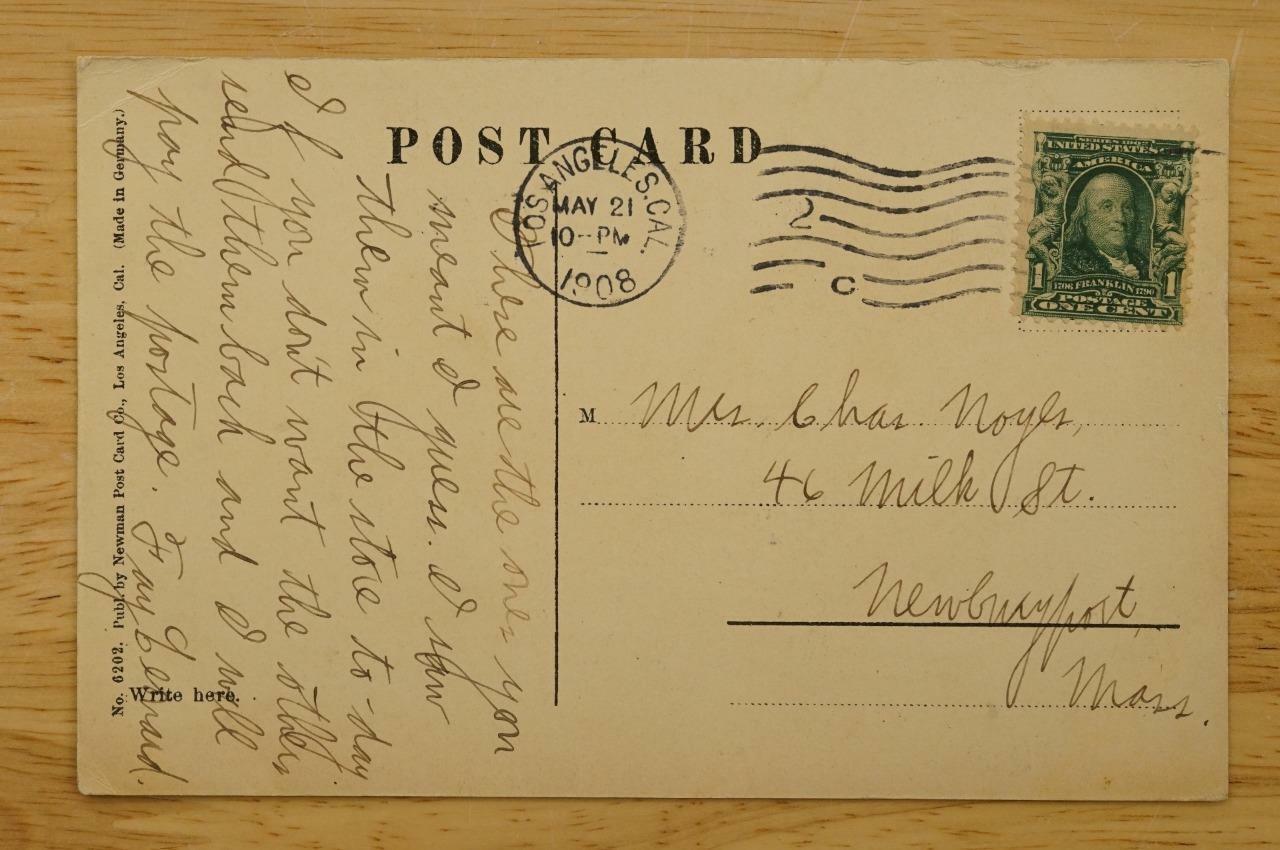 POST CARD
LOS ANGELES, CAL.
MAY 21
10-PM
1908
2
C
SERIES 1902
UNITED STATES OF
AMERICA
1706 FRANKLIN 1790
POSTAGE
1 ONE CENT 1
these are the ones you
meant I guess. I saw
them in the store to-day
If you don't want the others
send them back and I will
pay the postage. Fay
M Mrs. Chas. Noyes,
46 Milk St.
Newburyport,
Mass.
Write here.
No. 6202. Publ. by Newman Post Card Co., Los Angeles, Cal. (Made in Germany.)